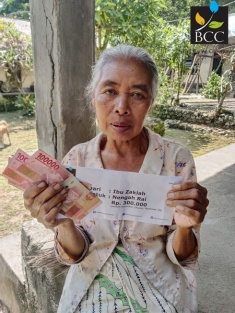 BCC
100000
Dari : Ibu Zakiah
Untuk : Nangah Rai
Rp. 300.000